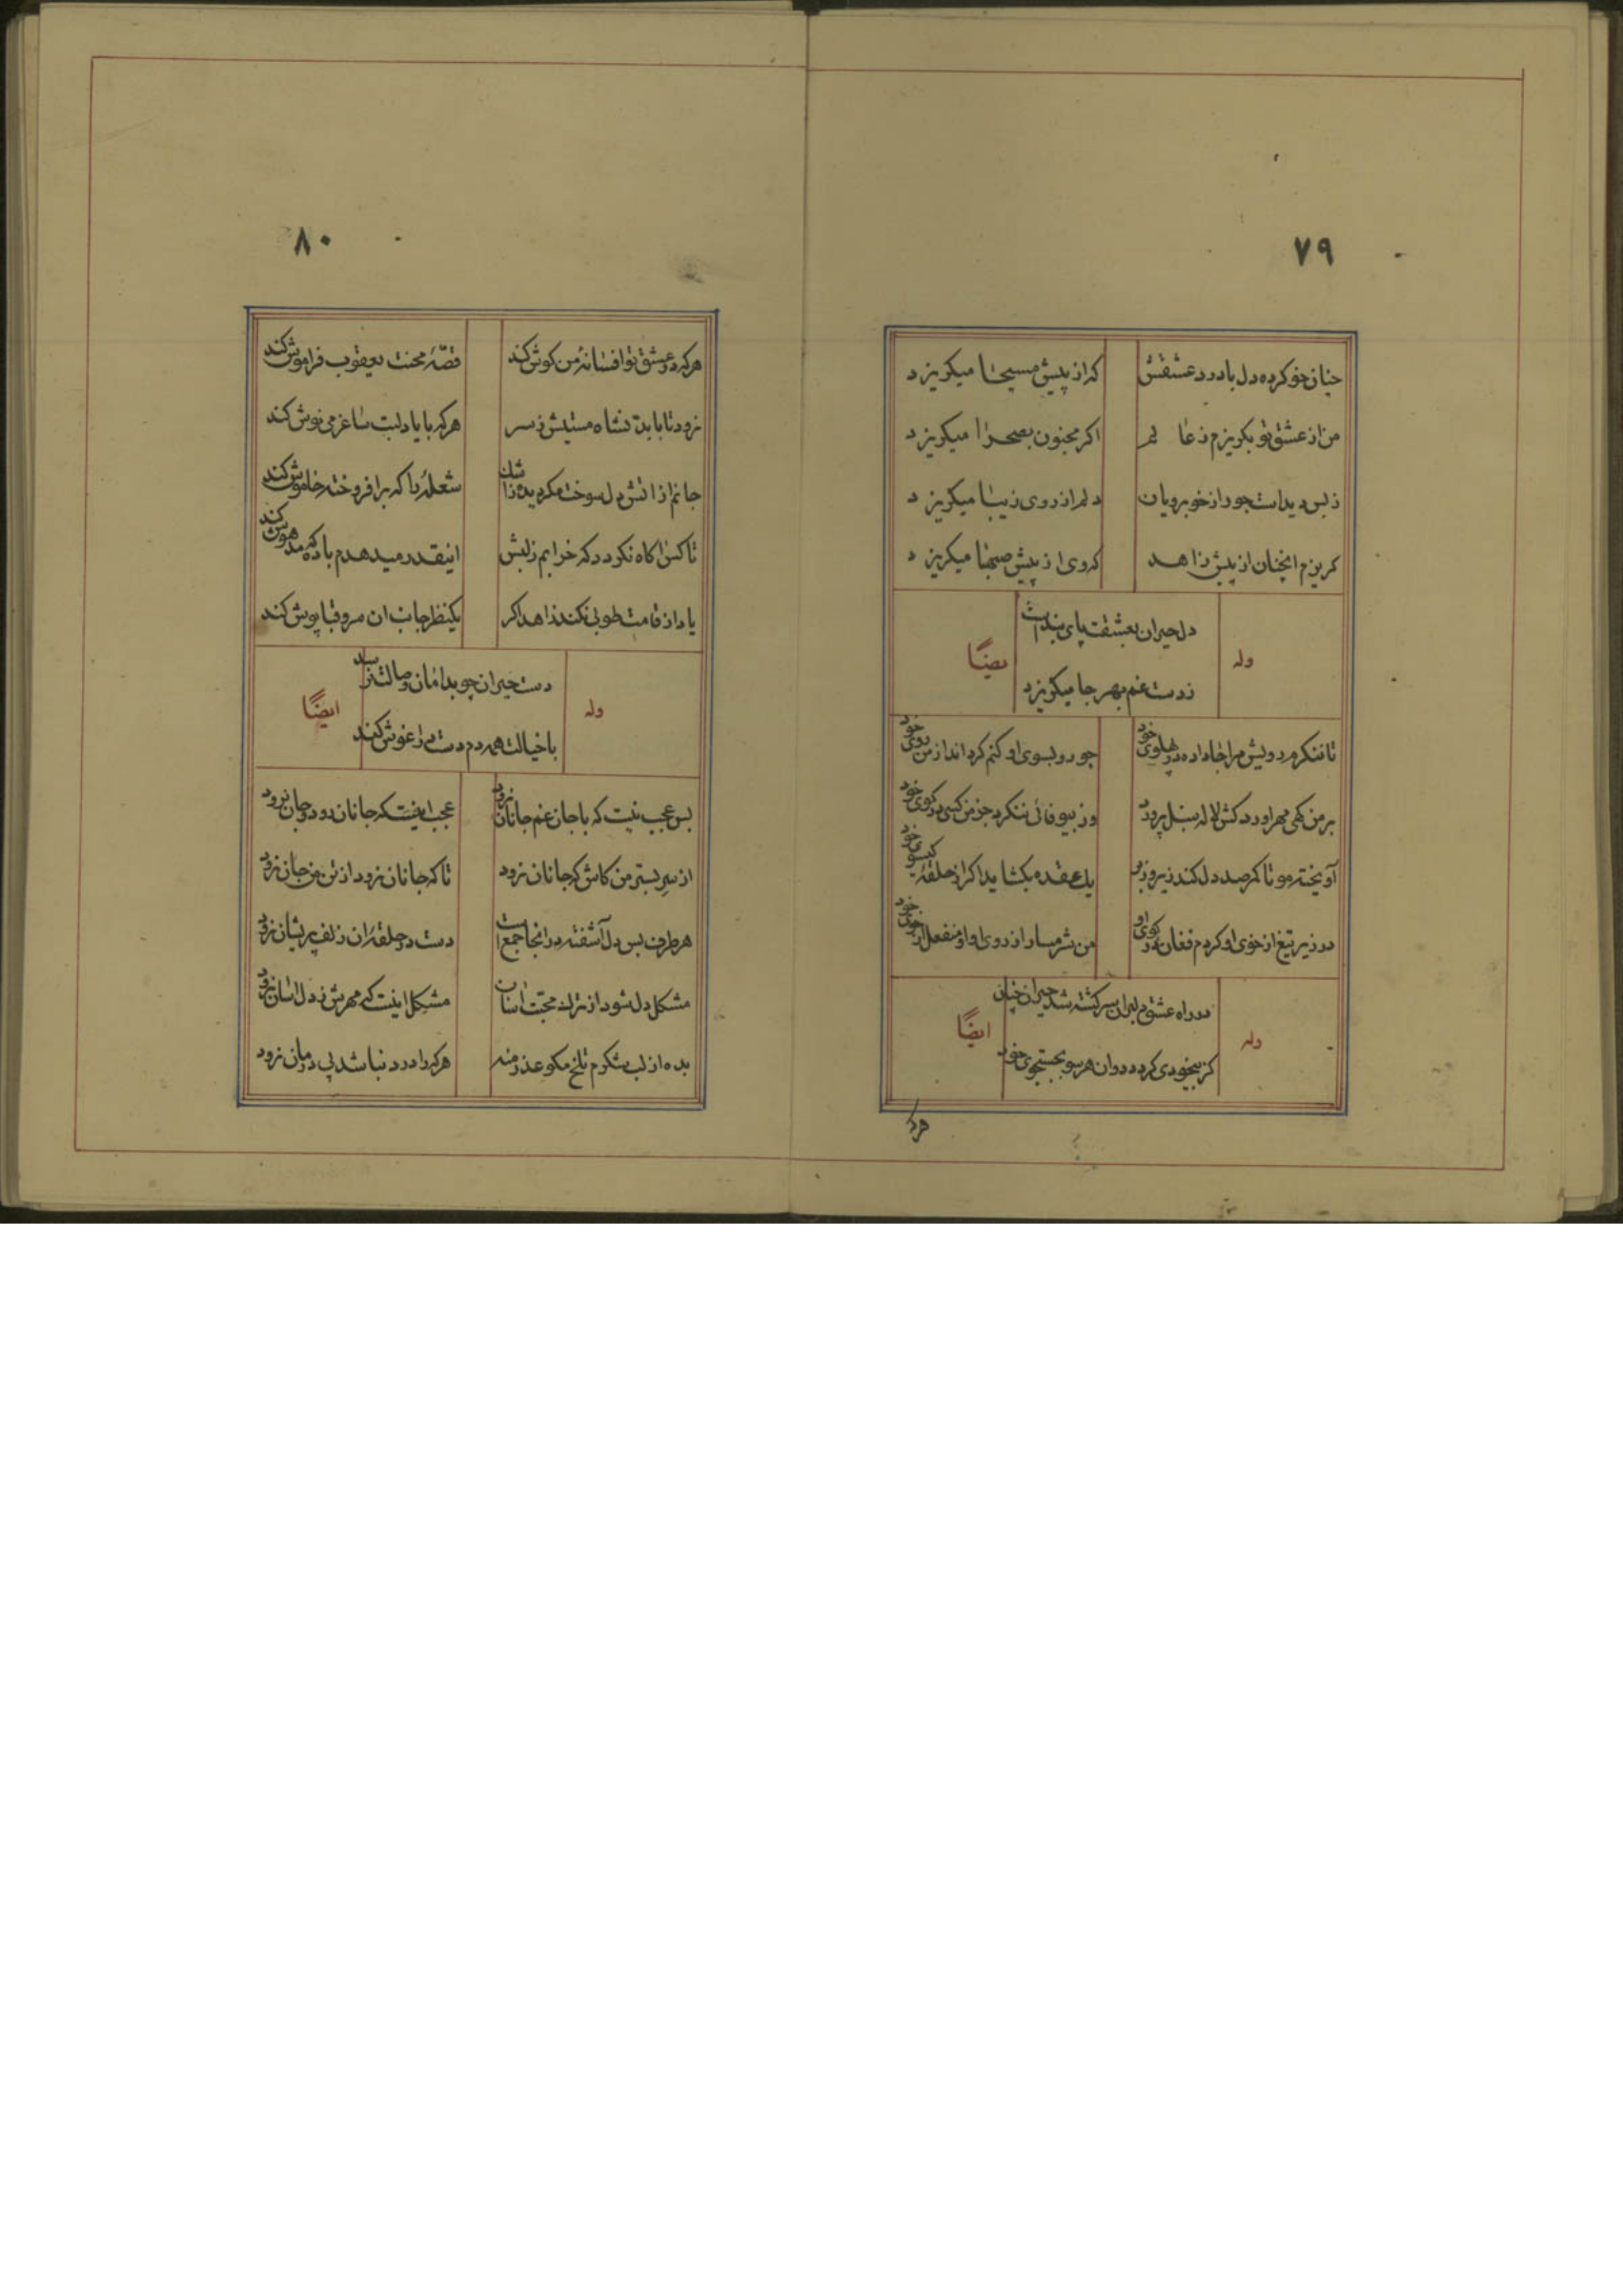 ۷۹
چنان خو کرده دل با درد عشقش
که از پیش مسیحا میکریزد
من از عشق تو بکریزم ذعالم
اکر مجنون بصحرا میکریزد
ز بس دیداست جور از خوبرویان
دلم از روی زیبا میکریزد
کریزم انچنان از پیش زاهد
که وی از پیش صهبا میکریزد
وله
دل حیران بعشقت پای بنداست
ز دست غم بهر جا میکریزد
ایضاً
تا ننکرم رویش مرا جا داده در پهلوی خود
چو رو بسوی او کنم کرداند از من روی خود
بر من کهی مهر اورد کش لاله سنبل پرورد
وز بیوفائی ننکرد جز من کسی در کوی خود
آویخته مو تا کمر صد دل کند زیر و زبر
یک عقده بکشاید اکر از حلقهٔ کیسوی خود
در زیر تیغ از خوی او کردم فغان در کوی او
من شرمسار از روی او او منفعل از خوی خود
وله
در راه عشق دلبران سرکشته شد حیران چنان
کز بیخودی کردد دوان هر سو بجستجوی خود
ایضاً
هرکه
۸۰
هرکه در عشق تو افسانهٔ من کوش کند
قصّهٔ محنت یعقوب فراموش کند
نرود تا بابد نشاه مستیش ز سر
هرکه با یاد لبت ساغر می نوش کند
جانم از اتش دل سوخت مکر دیده ز اشک
شعلهٔ را که برافروخته خاموش کند
تا کس اکاه نکردد که خرابم ز لبش
اینقدر میدهدم باده که مدهوش کند
یاد از قامت طوبی نکند زاهد اکر
یکنظر جانب ان سرو قباپوش کند
وله
دست حیران چو بدامان وصالت نرسد
با خیالت همه دم دست در اغوش کند
ایضاً
بس عجب نیست که با جان غم جانان نرود
عجب اینست که جانان رود و جان نرود
از سر بستر من کاش که جانان نرود
تا که جانان نرود از تن من جان نرود
هر طرف بس دل آشفته در انجا جمع است
دست در حلقهٔ ان زلف پریشان نرود
مشکل دل شود از ترک محبّت اسان
مشکل اینست که مهرش ز دل اسان نرود
بده از لب شکرم تلخ مکو عذر منه
هرکه را درد نباشد پی درمان نرود